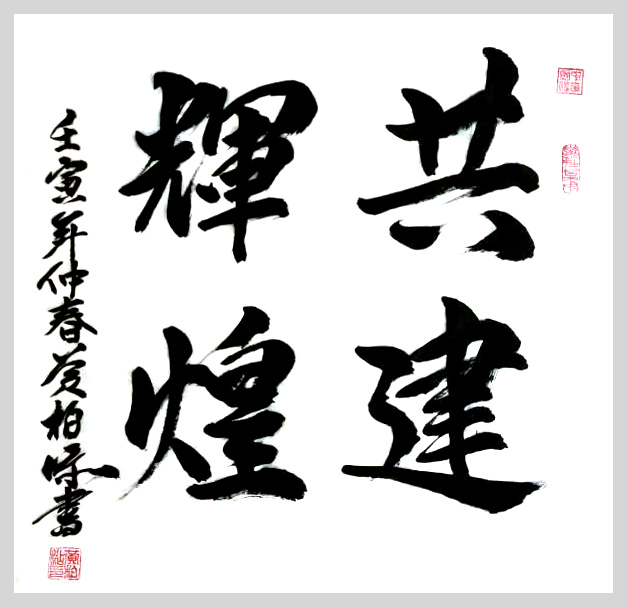 共建
輝煌
壬寅年仲春黄柏書